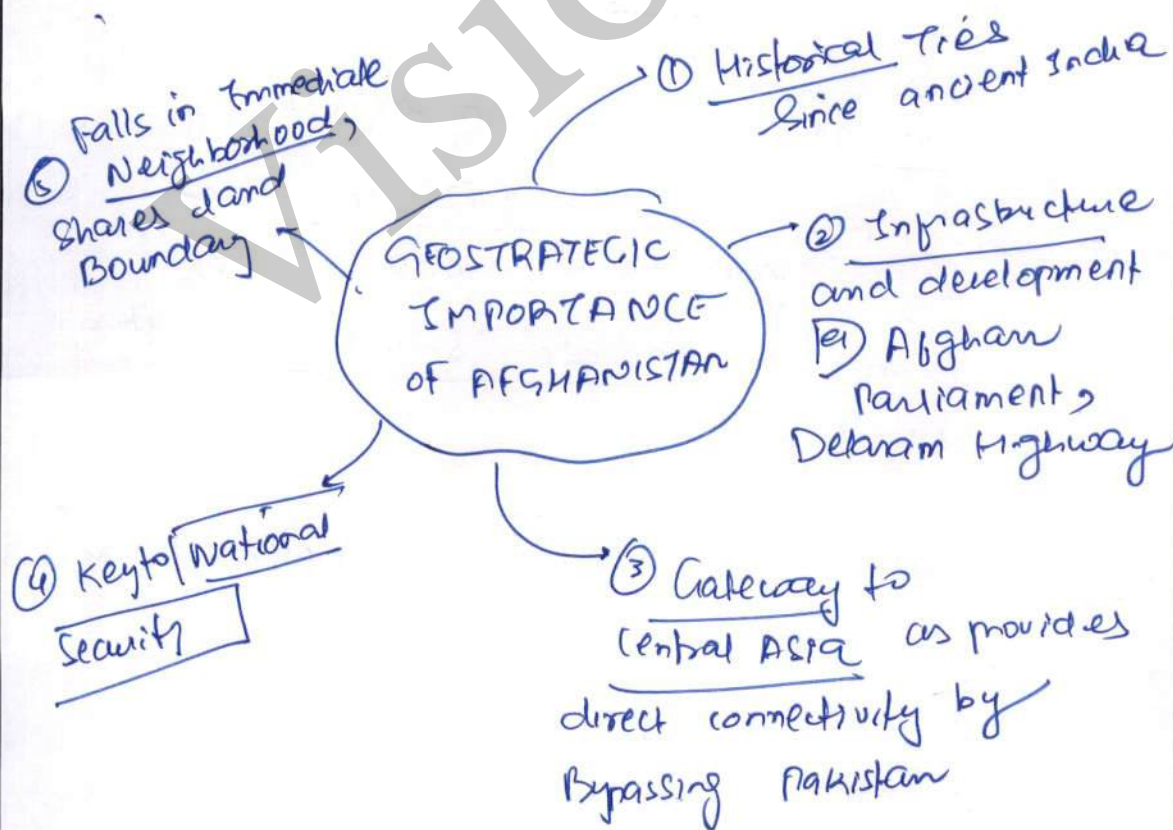 GEOSTRATEGIC
IMPORTANCE
OF AFGHANISTAN
① Historical Ties
Since ancient India
② Infrastructure
and development
eg Afghan
Parliament,
Delaram Highway
③ Gateway to
Central Asia as provides
direct connectivity by
Bypassing Pakistan
④ Key to National
Security
⑤ Falls in Immediate
Neighborhood,
Shares Land
Boundary
Visio